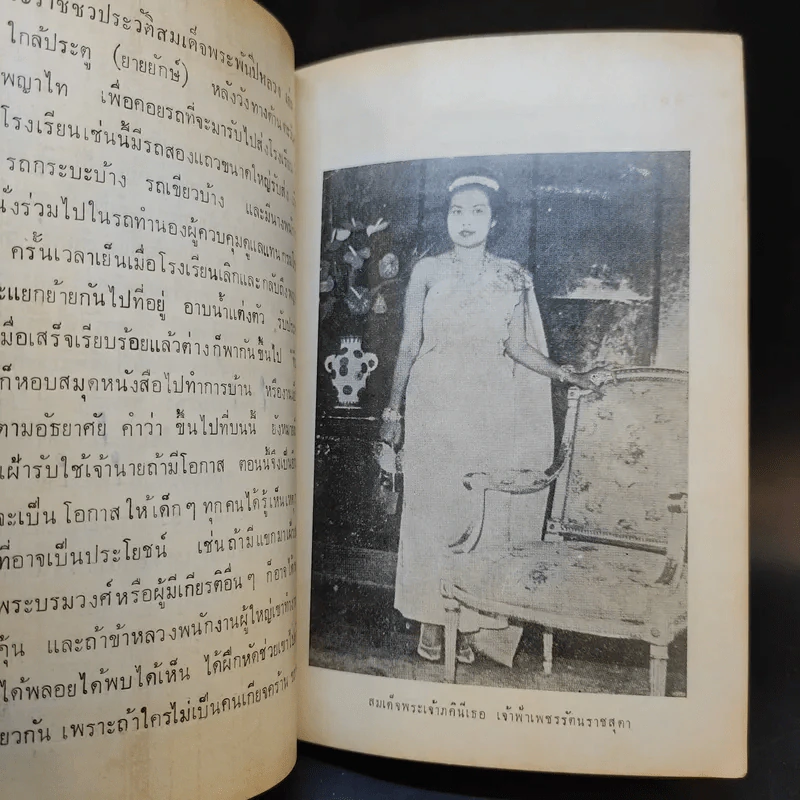 ราชชวประวัติสมเด็จพระพันปีหลวง
ใกล้ประตู (ยายยักษ์) หลังวังทางด้าน
พญาไท เพื่อคอยรถที่จะมารับไปส่งโรงเรียน
โรงเรียนเช่นนี้มีรถสองแถวขนาดใหญ่รับส่ง
รถกระบะบ้าง รถเขียวบ้าง และมีนางพนัก
นั่งร่วมไปในรถทำนองผู้ควบคุมดูแลแทน
ครั้นเวลาเย็นเมื่อโรงเรียนเลิกและกลับถึง
ะแยกย้ายกันไปที่อยู่ อาบน้ำแต่งตัว รับ
มื่อเสร็จเรียบร้อยแล้วต่างก็พากันขึ้นไป
ก็หอบสมุดหนังสือไปทำการบ้าน หรืองาน
ตามอัธยาศัย คำว่า ขึ้นไปที่บนนี้ ยังหมาย
เฝ้ารับใช้เจ้านายถ้ามีโอกาส ตอนนี้จึงเป็น
จะเป็นโอกาสให้เด็กๆ ทุกคนได้รู้เห็น
ที่อาจเป็นประโยชน์ เช่นถ้ามีแขกมาเฝ้า
พระบรมวงศ์หรือผู้มีเกียรติอื่นๆ ก็อาจได้
คุ้น และถ้าข้าหลวงพนักงานผู้ใหญ่เขาทำ
ได้พลอยได้พบได้เห็น ได้ฝึกหัดช่วยเขาไป
ยวกัน เพราะถ้าใครไม่เป็นคนเกียจคร้าน
สมเด็จพระเจ้าภคินีเธอ เจ้าฟ้าเพชรรัตนราชสุดา